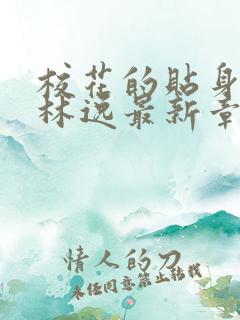 校花的贴身
林逸最新章
情人的刀
未经同意禁止转载